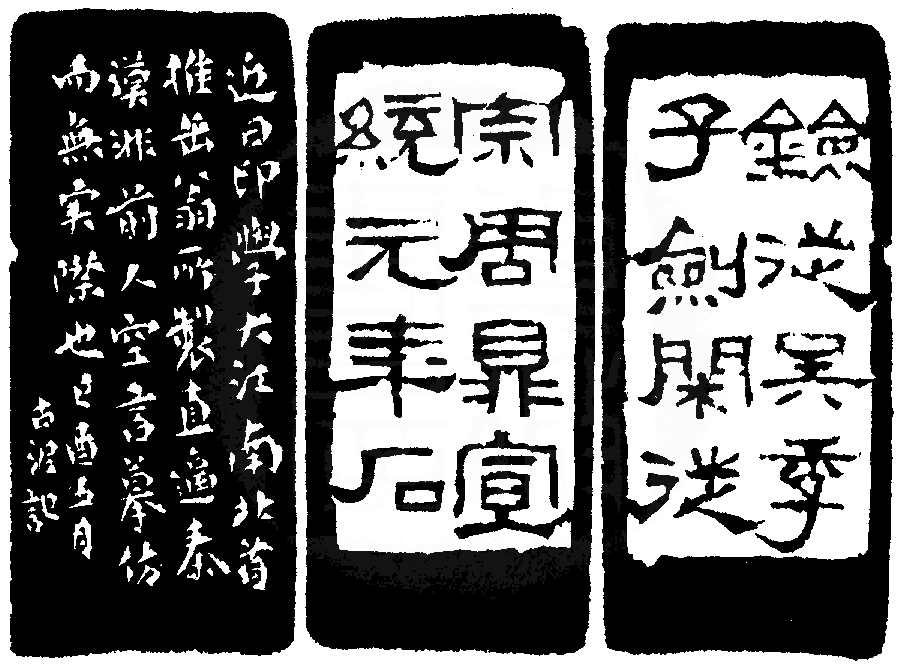 鐱從吳季
子劍閑從
宗周鼎宣
統元年石
近日印學大江南北首
推缶翁所製直逼秦
漢非前人空言摹仿
而無実際也己酉五月
古泥記